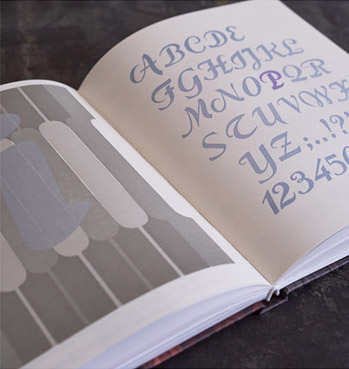 ABCDE
FGHIJKL
MNOPQR
STUVWX
YZ;...!?
123450